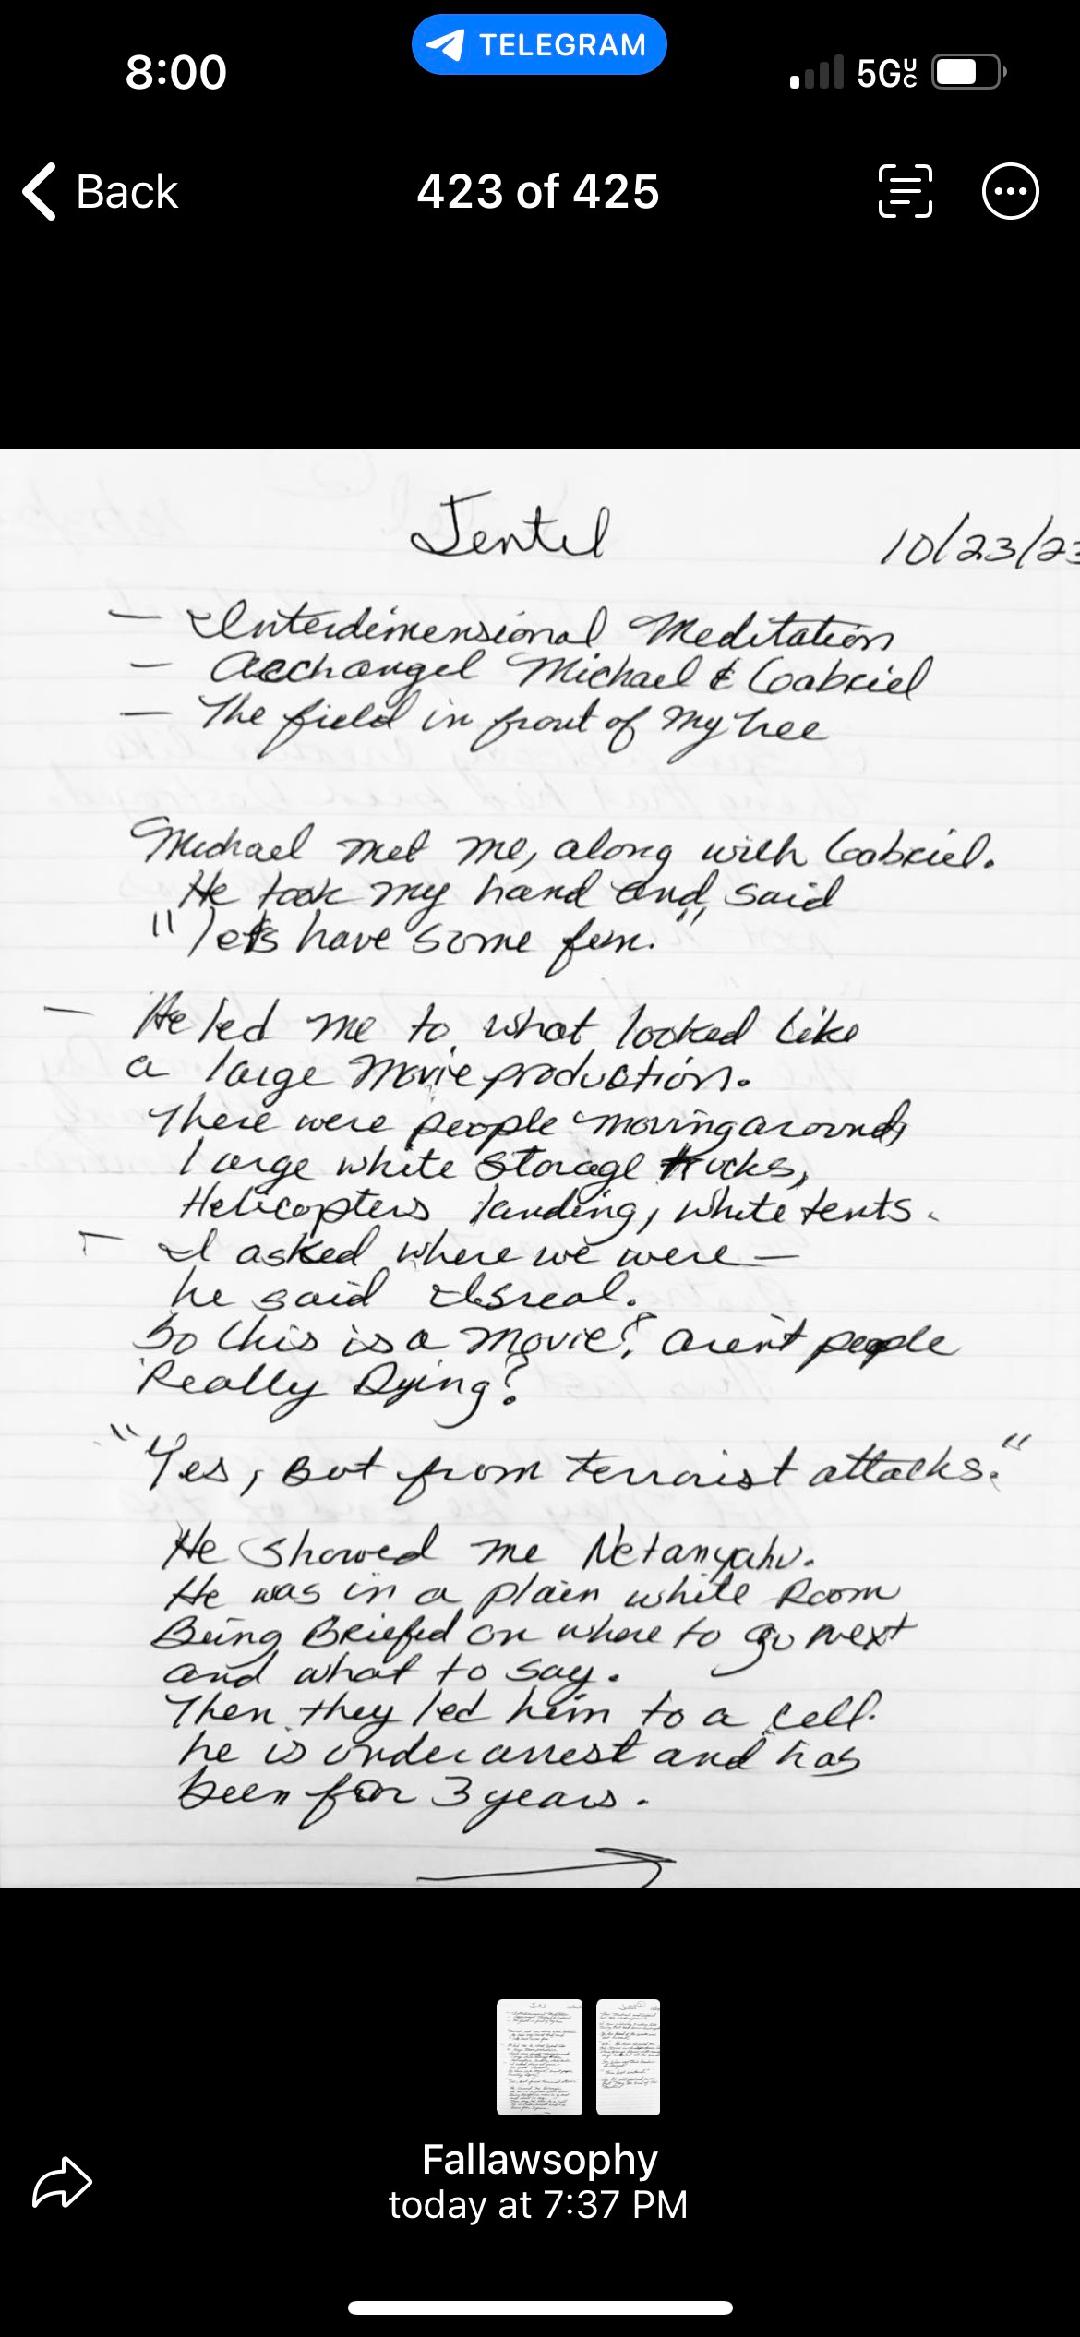 8:00
TELEGRAM
5G
Back
423 of 425
Jentel
10/23/23
— Interdimensional Meditation
— Archangel Michael & Gabriel
— The field in front of My tree
Michael met me, along with Gabriel.
He took my hand and, said
"lets have some fun."
— He led me to what looked like
a large Movie production.
There were people moving around,
large white storage trucks,
Helicopters landing, white tents.
— I asked where we were —
he said Isreal.
So this is a Movie? aren't people
Really Dying?
"Yes, But from terrorist attacks."
He showed me Netanyahu.
He was in a plain white Room
Being Briefed on where to go next
and what to say.
Then they led him to a cell.
he is under arrest and has
been for 3 years.
Fallawsophy
today at 7:37 PM